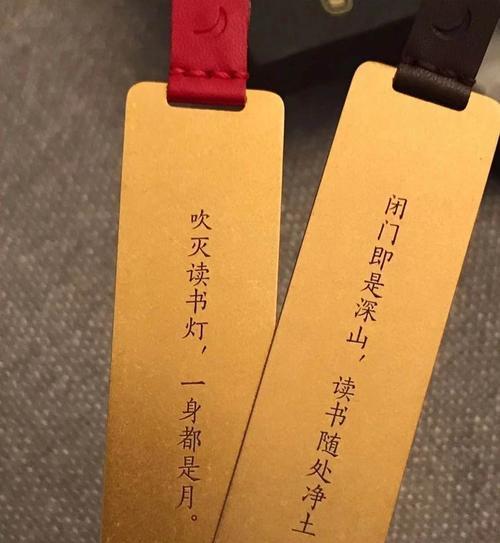 吹灭读书灯，一身都是月。
闭门即是深山，读书随处净土